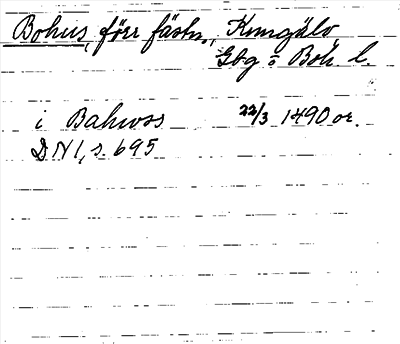 Bohus, förr fästn., Kungälv
Gbg o Boh. l.
i Bahwss 22/3 1490 or.
DN 1, s. 695